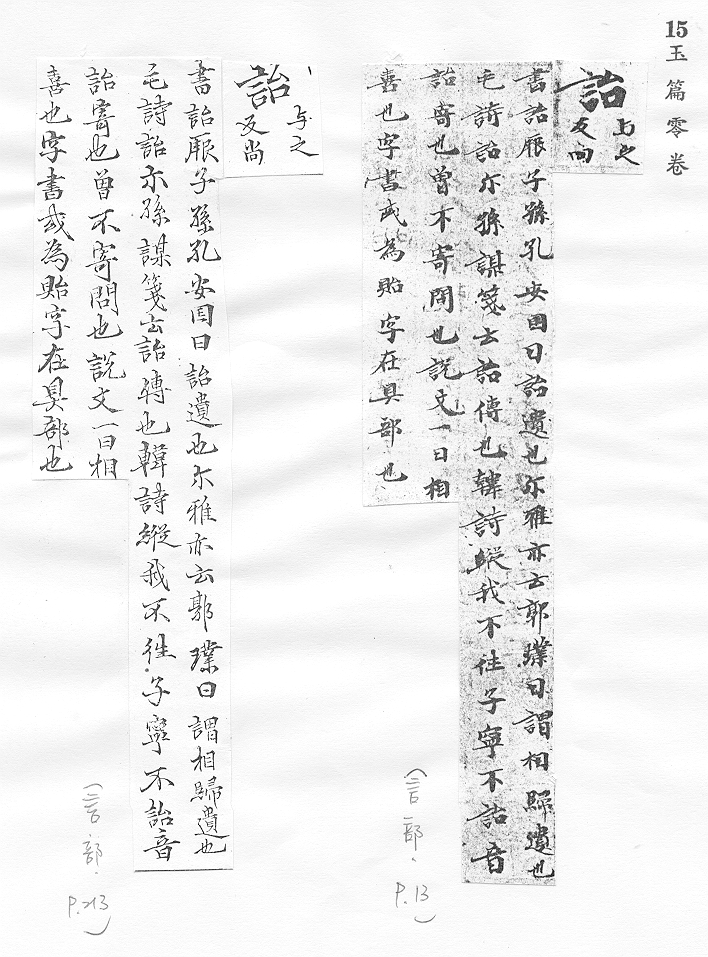 15
玉篇零卷
詒 与之
反尚
書詒厥子孫孔安国曰詒遺也尔雅亦云郭璞曰謂相歸遺也
毛詩詒尔孫謀箋云詒傳也韓詩縱我不往子寧不詒音
詒寄也曾不寄問也說文一曰相
喜也字書或為貽字在貝部也
(言部、
P.13)
詒 与之
反尚
書詒厥子孫孔安国曰詒遺也尔雅亦云郭璞曰謂相歸遺也
毛詩詒尔孫謀箋云詒傳也韓詩縱我不往子寧不詒音
詒寄也曾不寄問也說文一曰相
喜也字書或為貽字在貝部也
(言部、
P.213)